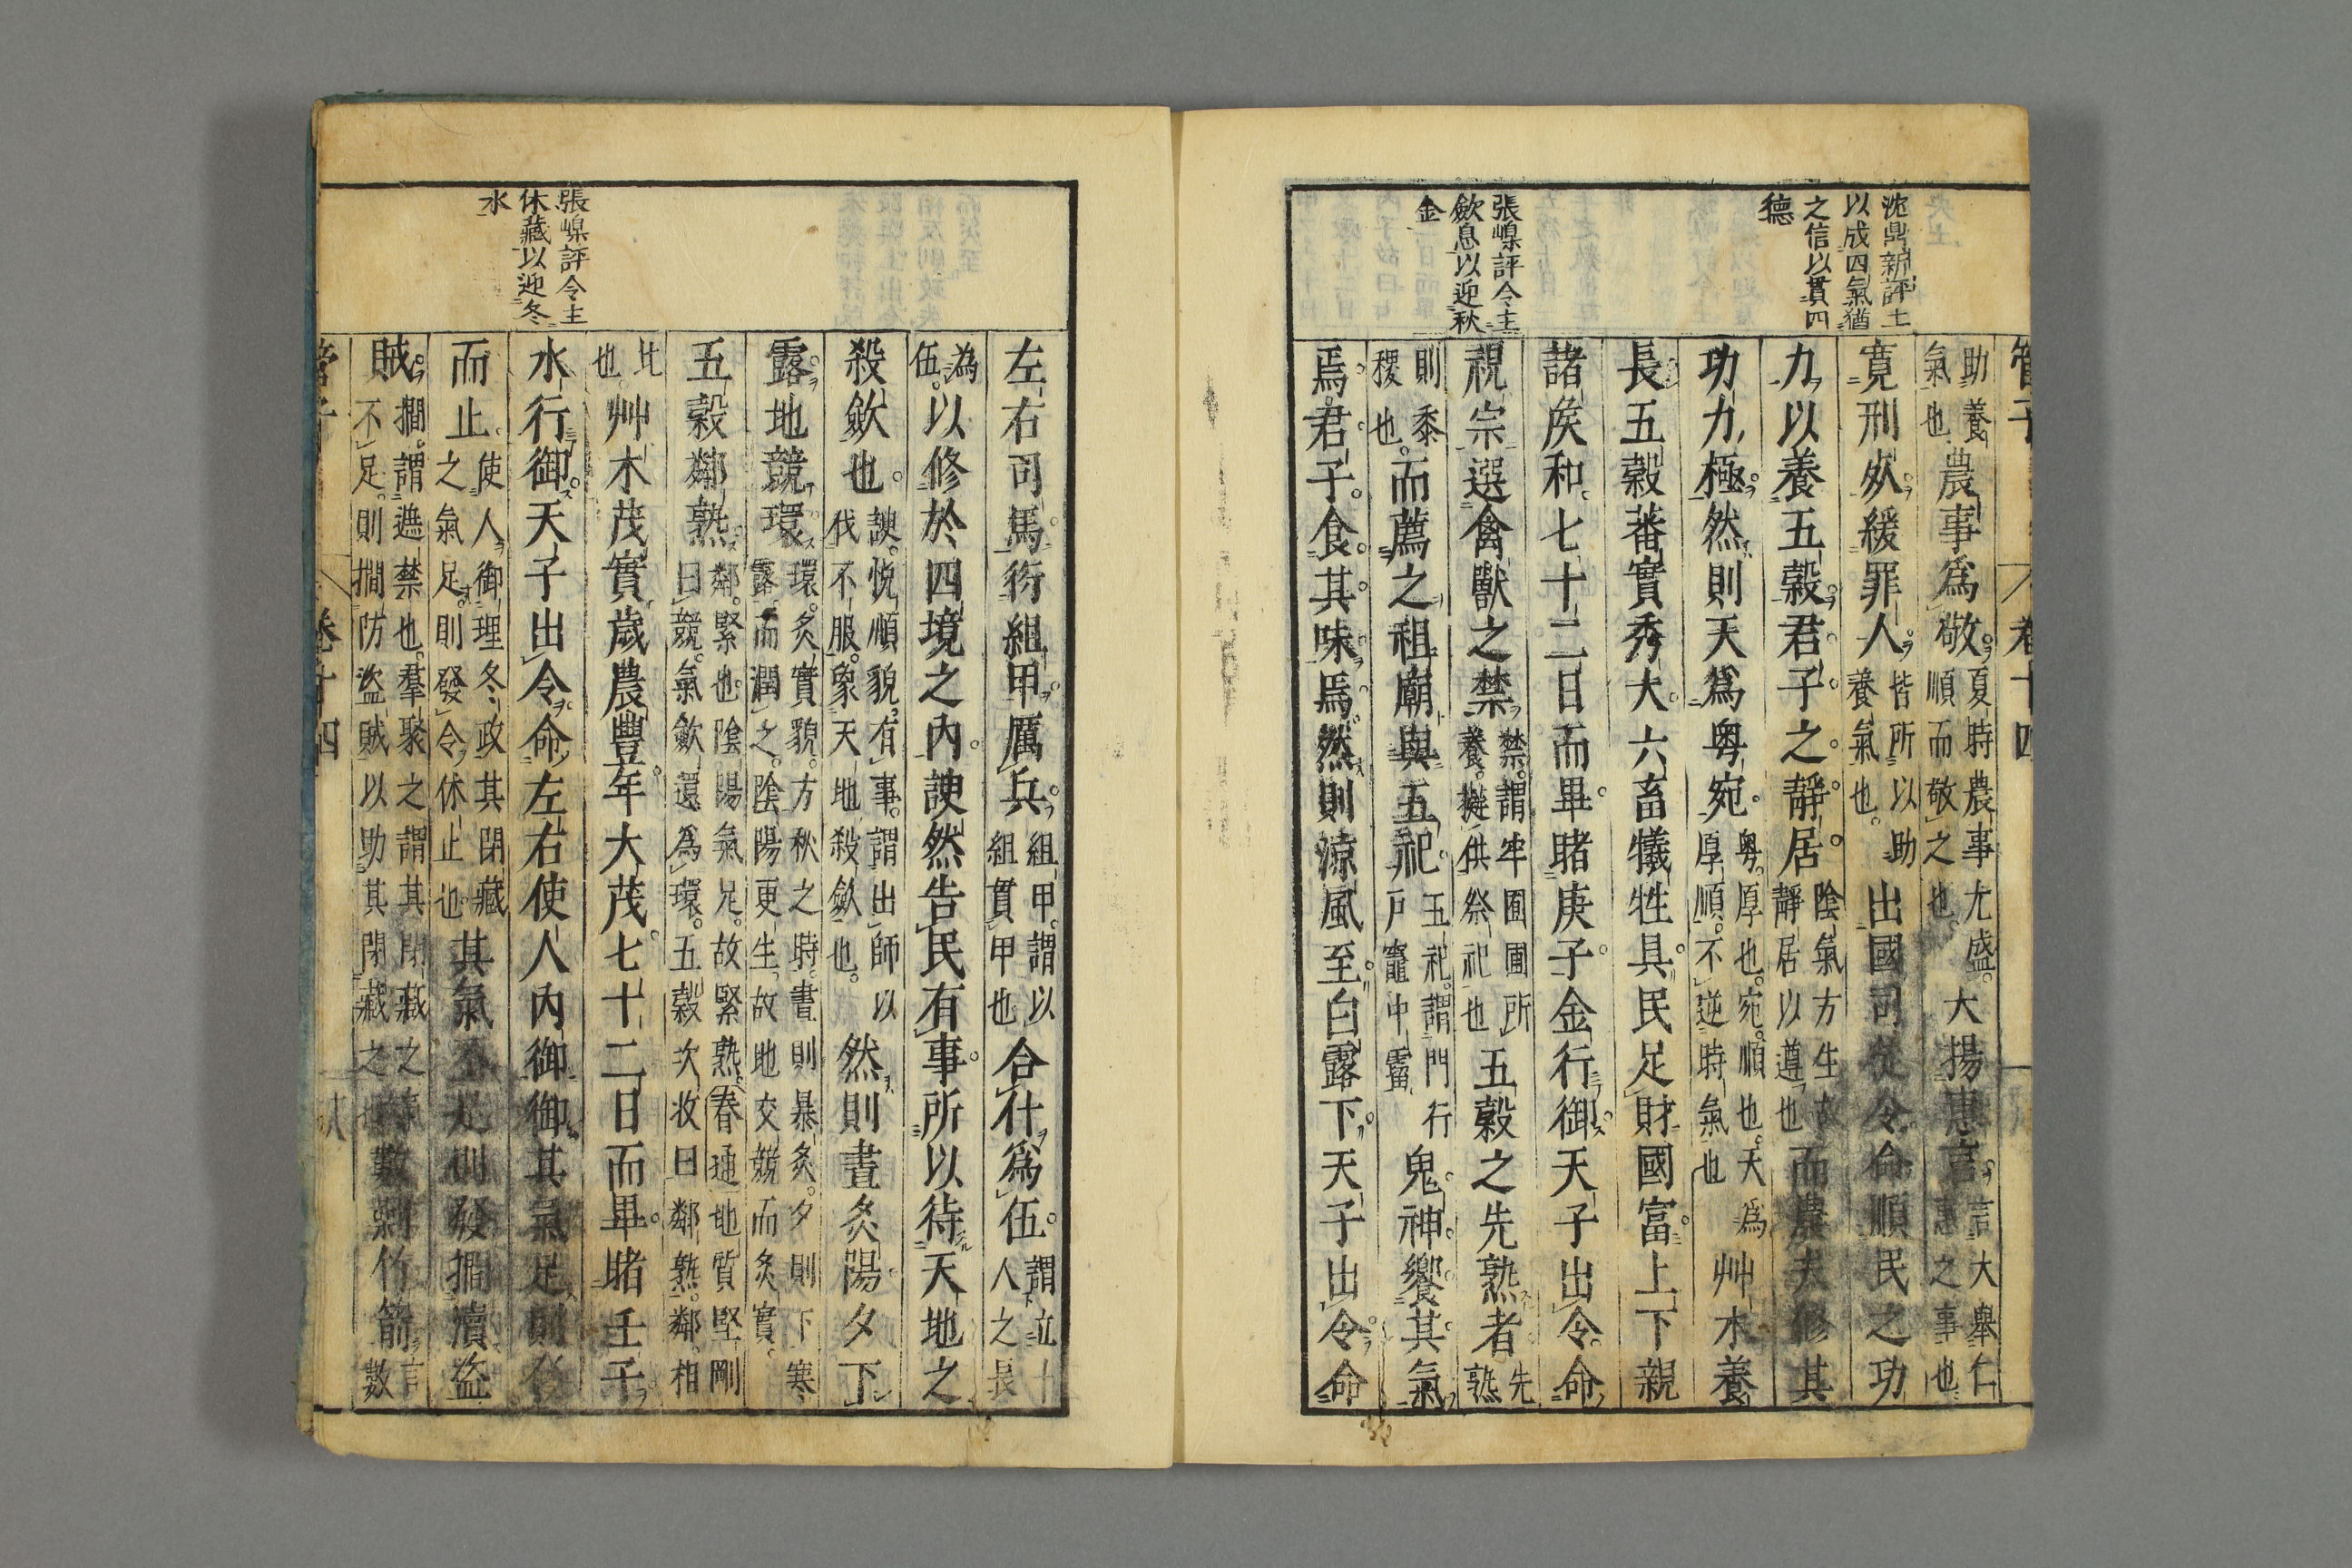 沈鼎新評土
以成四氣猶
之信以貫四
德
張嵲評令主
斂息以迎秋
金
管子 卷十四
助養
氣也
農事爲敬
夏時農事尤盛
順而敬之也
大揚惠言
言大舉仁
惠之事也
寬刑𣦸緩罪人
皆所以助
養氣也
出國司徒令命順民之功
力以養五穀君子之靜居
陰氣方生故
靜居以遵也
而農夫修其
功力極然則天爲粤宛
粤厚也宛順也天爲
厚順不逆時氣也
艸木養
長五穀蕃實秀大六畜犧牲具民足財國富上下親
諸矦和七十二日而畢睹庚子金行御天子出令命
祝宗選禽獸之禁
禁謂牢圈圃所
養擬供祭祀也
五穀之先熟者
先
熟
則黍
稷也
而薦之祖廟與五祀
五祀謂門行
戸竈中霤
鬼神饗其氣
焉君子食其味焉然則涼風至白露下天子出令命
張嵲評令主
休藏以迎冬
水
左右司馬衍組甲厲兵
組甲謂以
組貫甲也
合什爲伍
謂立十
人之長
為
伍
以修於四境之內諛然告民有事所以待天地之
殺斂也
諛悅順貌有事謂出師以
伐不服象天地殺斂也
然則晝炙陽夕下
露地競環
環炙實貌方秋之時晝則暴炙夕則下寒
露而潤之陰陽更生故地交競而炙實
五穀鄰熟
鄰緊也陰陽氣足故緊熟春通地質堅剛
曰競氣斂還為環五穀次收曰鄰熟鄰相
比
也
艸木茂實歲農豐年大茂七十二日而畢睹壬子
水行御天子出令命左右使人內御御其氣足則發
而止
使人御理冬政其閉藏
之氣足則發令休止也
其氣不足則發撊瀆盜
賊
撊謂遮禁也羣聚之謂其閉藏之氣
不足則撊防盜賊以助其閉藏之也
數剝竹箭
言
數
管子 卷十四